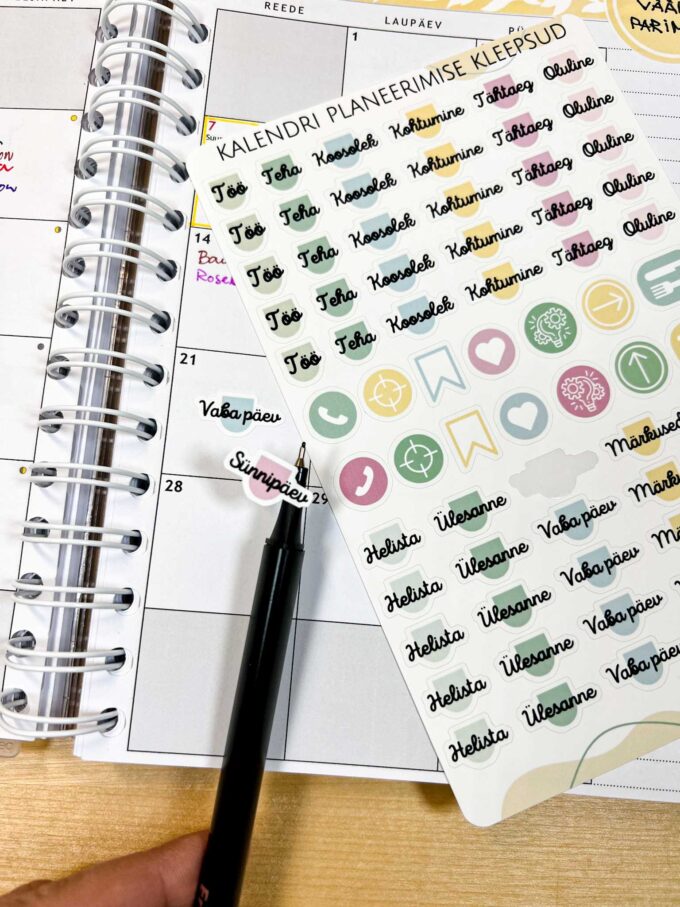 REEDE
LAUPÄEV
1
7
14
21
28
29
Vaba päev
Sünnipäev
KALENDRI PLANEERIMISE KLEEPSUD
Töö Teha Koosolek Kohtumine Tähtaeg Oluline
Töö Teha Koosolek Kohtumine Tähtaeg Oluline
Töö Teha Koosolek Kohtumine Tähtaeg Oluline
Töö Teha Koosolek Kohtumine Tähtaeg Oluline
Töö Teha Koosolek Kohtumine Tähtaeg Oluline
Helista Ülesanne Vaba päev Märkused
Helista Ülesanne Vaba päev
Helista Ülesanne Vaba päev
Helista Ülesanne Vaba päev
Helista Ülesanne